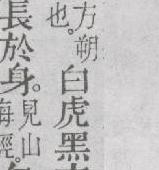 方朔
也。
白虎黑
長於身。
見山
海經。